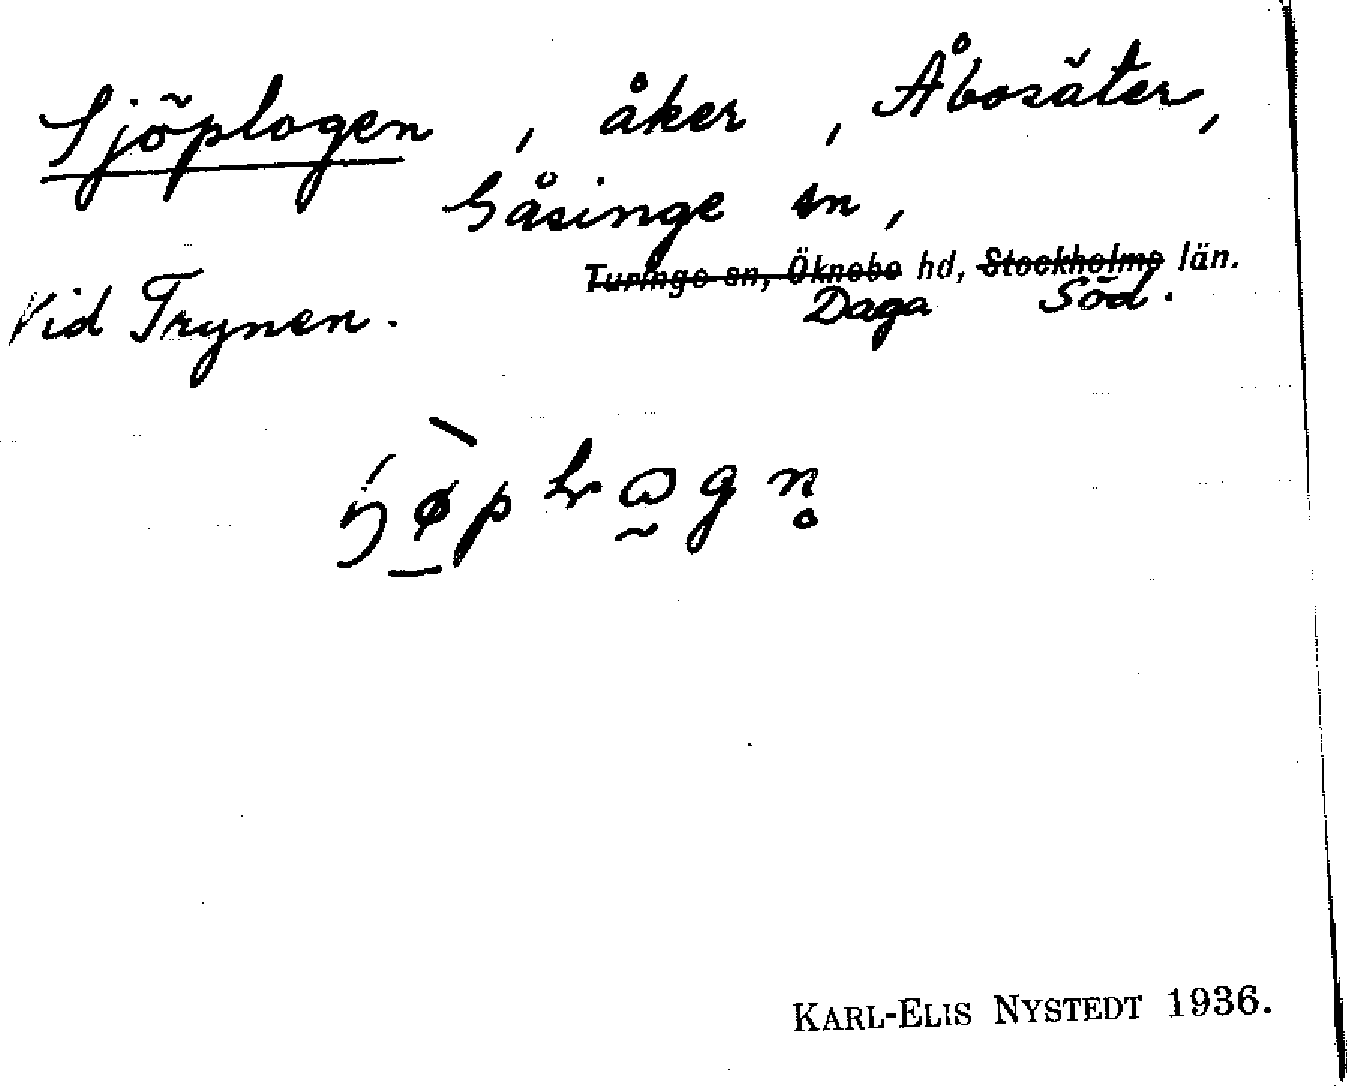 Sjöplogen, åker, Åbosäter,
Gåsinge sn,
Turinge sn, Öknebo hd, Stockholms län.
Vid Trynen. Daga Söd.
KARL-ELIS NYSTEDT 1936.